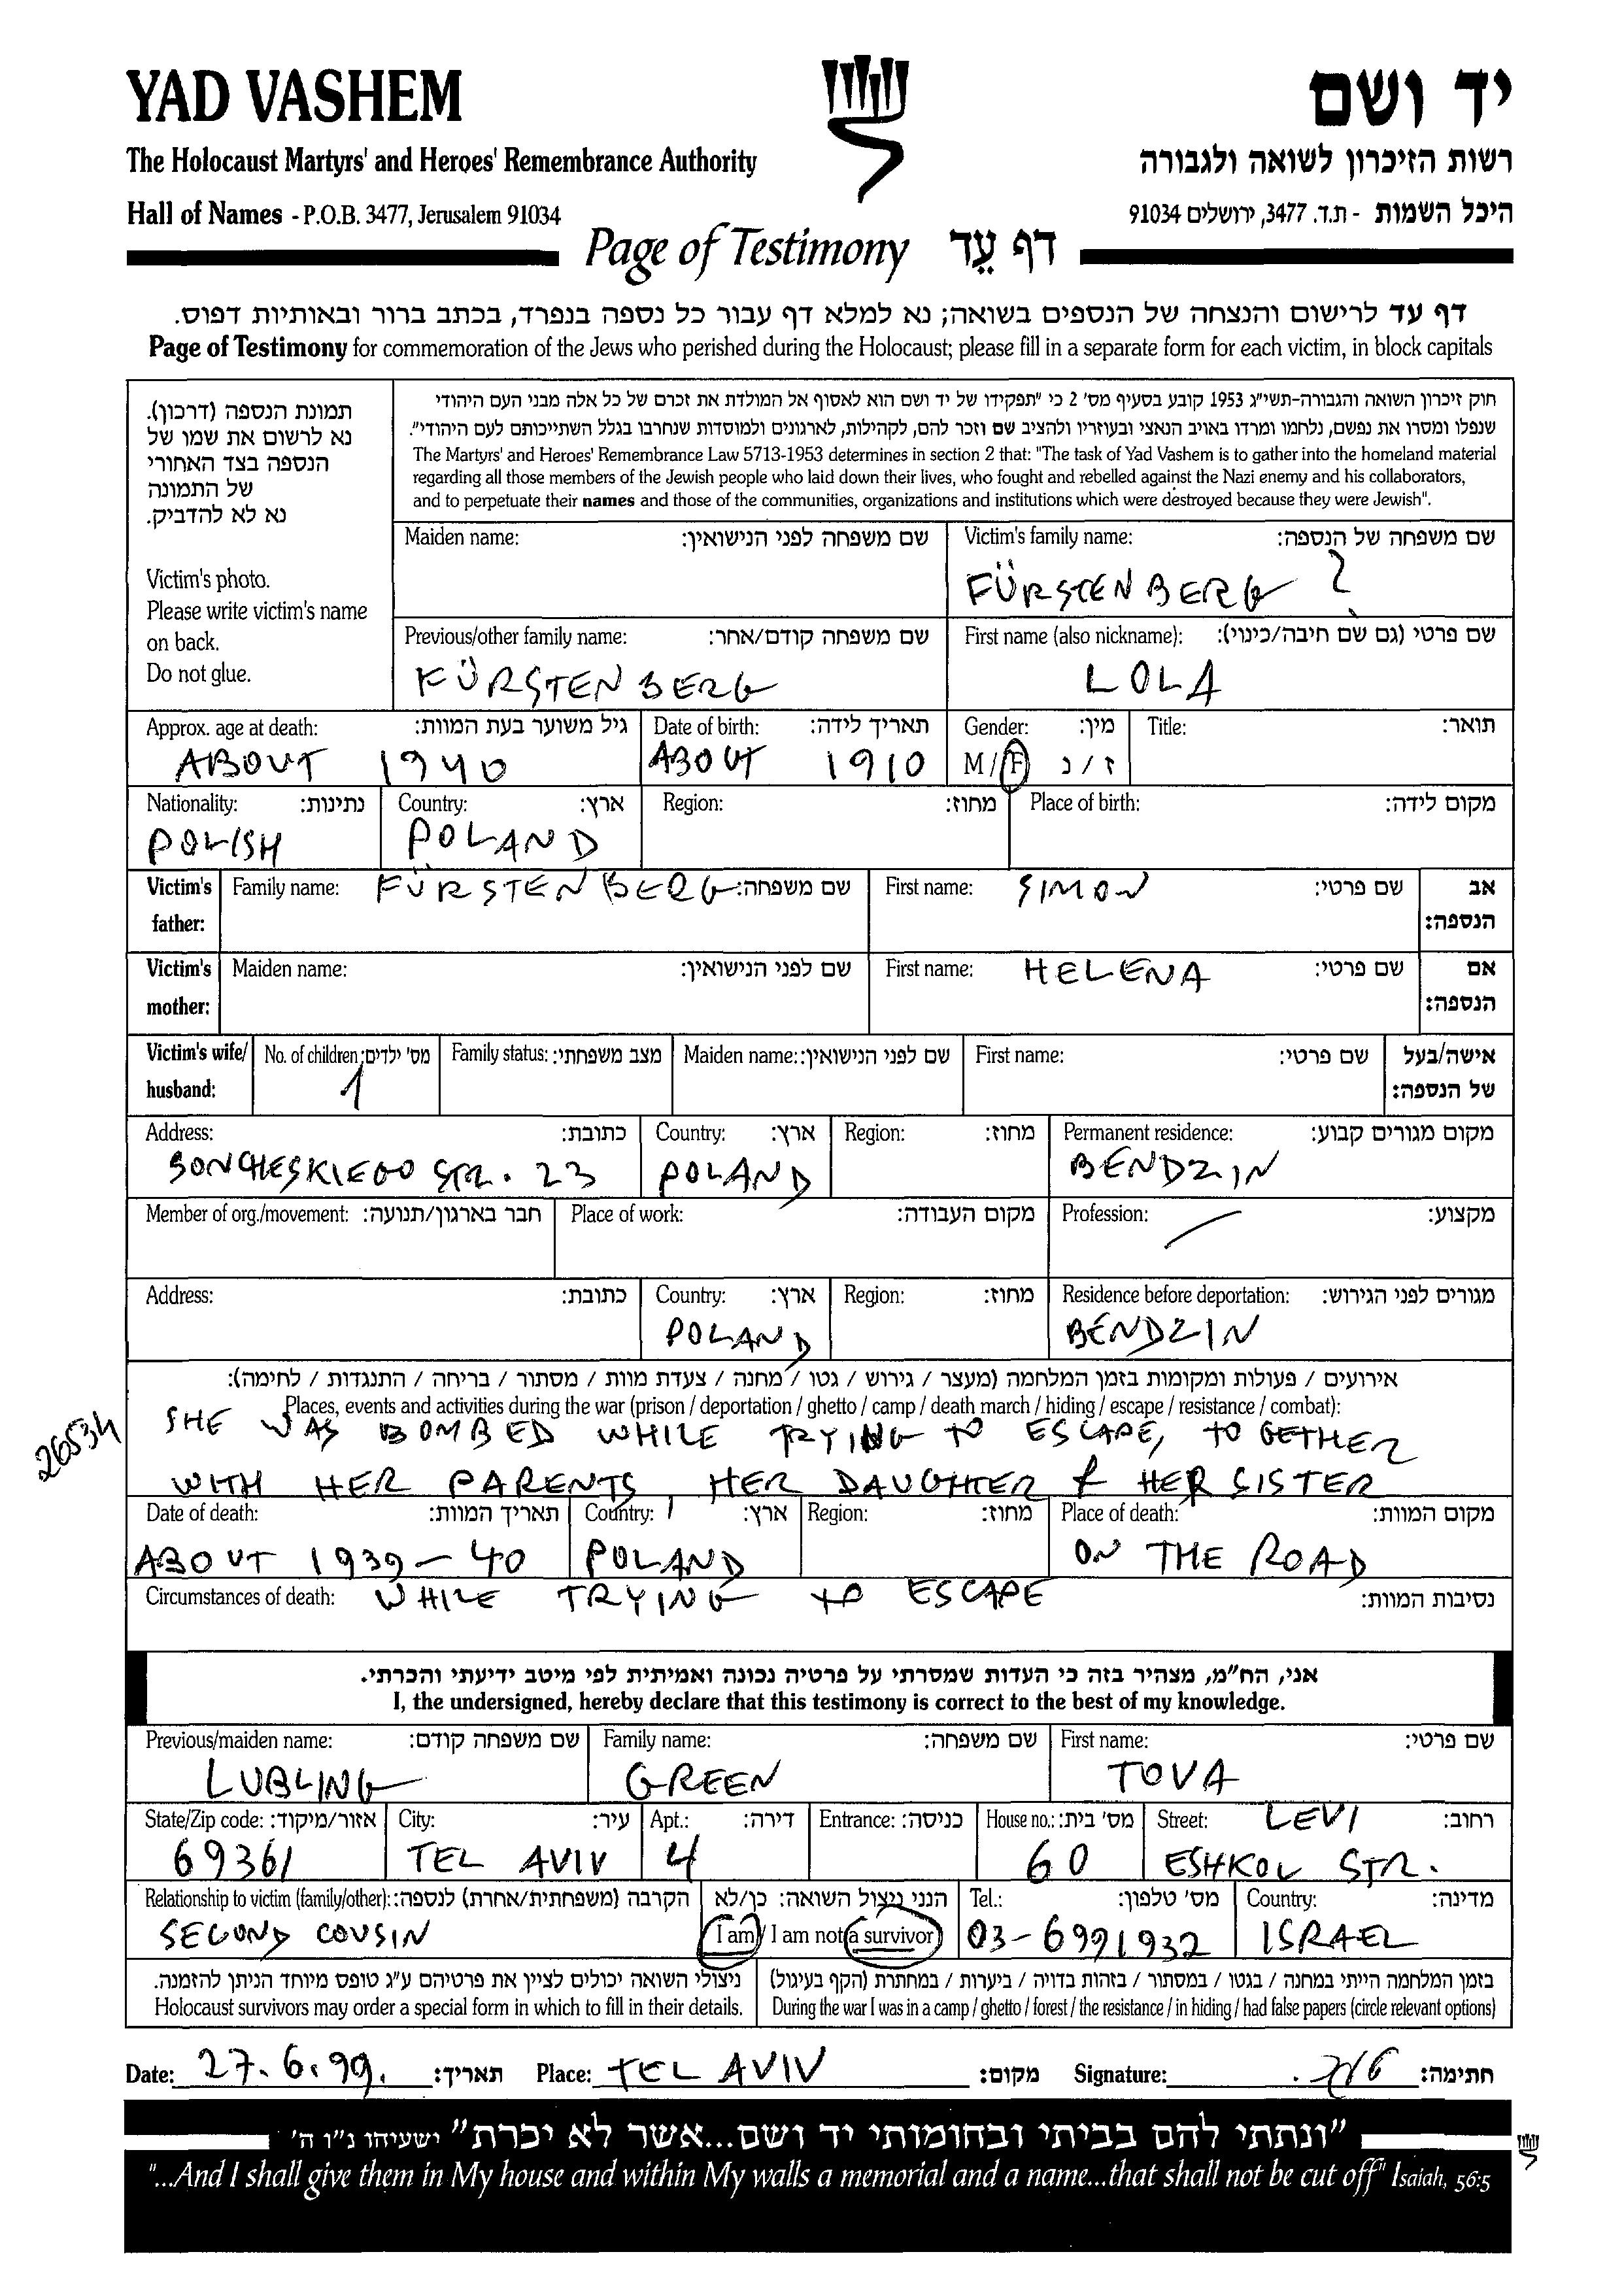 YAD VASHEM
יד ושם
The Holocaust Martyrs' and Heroes' Remembrance Authority
רשות הזיכרון לשואה ולגבורה
Hall of Names - P.O.B. 3477, Jerusalem 91034
היכל השמות - ת.ד. 3477, ירושלים 91034
Page of Testimony דף עֵד
דף עד לרישום והנצחה של הנספים בשואה; נא למלא דף עבור כל נספה בנפרד, בכתב ברור ובאותיות דפוס.
Page of Testimony for commemoration of the Jews who perished during the Holocaust; please fill in a separate form for each victim, in block capitals
תמונת הנספה (דרכון).
נא לרשום את שמו של
הנספה בצד האחורי
של התמונה
נא לא להדביק.
Victim's photo.
Please write victim's name
on back.
Do not glue.
חוק זיכרון השואה והגבורה-תשי"ג 1953 קובע בסעיף מס' 2 כי "תפקידו של יד ושם הוא לאסוף אל המולדת את זכרם של כל אלה מבני העם היהודי
שנפלו ומסרו את נפשם, נלחמו ומרדו באויב הנאצי ובעוזריו ולהציב שם וזכר להם, לקהילות, לארגונים ולמוסדות שנחרבו בגלל השתייכותם לעם היהודי".
The Martyrs' and Heroes' Remembrance Law 5713-1953 determines in section 2 that: "The task of Yad Vashem is to gather into the homeland material
regarding all those members of the Jewish people who laid down their lives, who fought and rebelled against the Nazi enemy and his collaborators,
and to perpetuate their names and those of the communities, organizations and institutions which were destroyed because they were Jewish".
Maiden name: שם משפחה לפני הנישואין:
Victim's family name: שם משפחה של הנספה:
FÜRSTENBERG ?
Previous/other family name: שם משפחה קודם/אחר:
FÜRSTENBERG
First name (also nickname): שם פרטי (גם שם חיבה/כינוי):
LOLA
Approx. age at death: גיל משוער בעת המוות:
ABOUT 1940
Date of birth: תאריך לידה:
ABOUT 1910
Gender: מין:
M / F ז / נ
Title: תואר:
Nationality: נתינות:
POLISH
Country: ארץ:
POLAND
Region: מחוז:
Place of birth: מקום לידה:
Victim's father:
Family name: FÜRSTENBERG שם משפחה:
First name: SIMON שם פרטי:
אב הנספה:
Victim's mother:
Maiden name: שם לפני הנישואין:
First name: HELENA שם פרטי:
אם הנספה:
Victim's wife/ husband:
No. of children: מס' ילדים:
1
Family status: מצב משפחתי:
Maiden name: שם לפני הנישואין:
First name: שם פרטי:
אישה/בעל של הנספה:
Address: כתובת:
STR. 23
Country: ארץ:
POLAND
Region: מחוז:
Permanent residence: מקום מגורים קבוע:
BENDZIN
Member of org./movement: חבר בארגון/תנועה:
Place of work: מקום העבודה:
Profession: מקצוע:
Address: כתובת:
Country: ארץ:
POLAND
Region: מחוז:
Residence before deportation: מגורים לפני הגירוש:
BENDZIN
אירועים / פעולות ומקומות בזמן המלחמה (מעצר / גירוש / גטו / מחנה / צעדת מוות / מסתור / בריחה / התנגדות / לחימה):
Places, events and activities during the war (prison / deportation / ghetto / camp / death march / hiding / escape / resistance / combat):
26534
SHE WAS BOMBED WHILE TRYING TO ESCAPE, TOGETHER
WITH HER PARENTS, HER DAUGHTER & HER SISTER
Date of death: תאריך המוות:
ABOUT 1939-40
Country: ארץ:
POLAND
Region: מחוז:
Place of death: מקום המוות:
ON THE ROAD
Circumstances of death: WHILE TRYING TO ESCAPE נסיבות המוות:
אני, הח"מ, מצהיר בזה כי העדות שמסרתי על פרטיה נכונה ואמיתית לפי מיטב ידיעתי והכרתי.
I, the undersigned, hereby declare that this testimony is correct to the best of my knowledge.
Previous/maiden name: שם משפחה קודם:
LUBLING
Family name: שם משפחה:
GREEN
First name: שם פרטי:
TOVA
State/Zip code: אזור/מיקוד:
69361
City: עיר:
TEL AVIV
Apt.: דירה:
4
Entrance: כניסה:
House no.: מס' בית:
60
Street: רחוב:
LEVI
ESHKOL STR.
Relationship to victim (family/other): הקרבה (משפחתית/אחרת) לנספה:
SECOND COUSIN
הנני ניצול השואה: כן/לא
I am / I am not a survivor
Tel.: מס' טלפון:
03-6991932
Country: מדינה:
ISRAEL
ניצולי השואה יכולים לציין את פרטיהם ע"ג טופס מיוחד הניתן להזמנה.
Holocaust survivors may order a special form in which to fill in their details.
בזמן המלחמה הייתי במחנה / בגטו / במסתור / בזהות בדויה / ביערות / במחתרת (הקף בעיגול)
During the war I was in a camp / ghetto / forest / the resistance / in hiding / had false papers (circle relevant options)
Date: 27.6.99. תאריך: Place: TEL AVIV מקום: Signature: חתימה:
"ונתתי להם בביתי ובחומותי יד ושם...אשר לא יכרת" ישעיהו נ"ו ה'
"...And I shall give them in My house and within My walls a memorial and a name...that shall not be cut off" Isaiah, 56:5